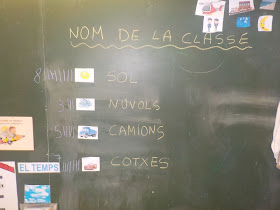 NOM DE LA CLASSE
8 SOL
3 NÚVOLS
5 CAMIONS
7 COTXES
EL TEMPS